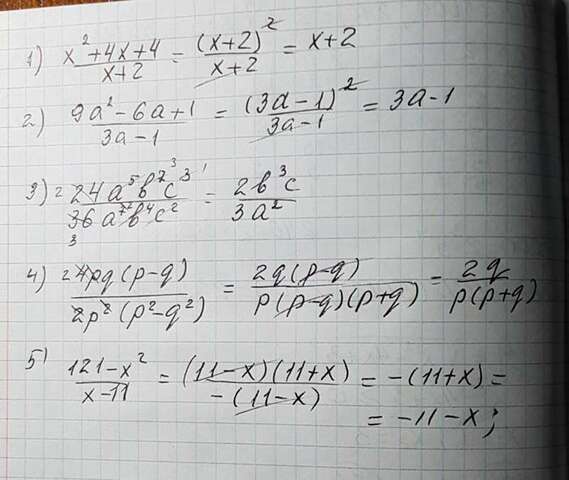 1) x²+4x+4/x+2 = (x+2)²/x+2 = x+2
2) 9a²-6a+1/3a-1 = (3a-1)²/3a-1 = 3a-1
3) 24a⁵b⁷c³/36a⁷b⁴c² = 2b³c/3a²
4) 4pq(p-q)/2p²(p²-q²) = 2q(p-q)/p(p-q)(p+q) = 2q/p(p+q)
5) 121-x²/x-11 = (11-x)(11+x)/-(11-x) = -(11+x) =
= -11-x;